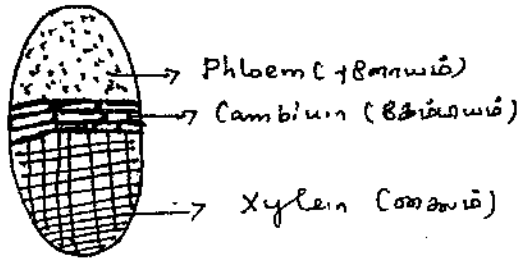 Phloem (ஃபுளோயம்)
Cambium (கேம்பியம்)
Xylem (சைலம்)